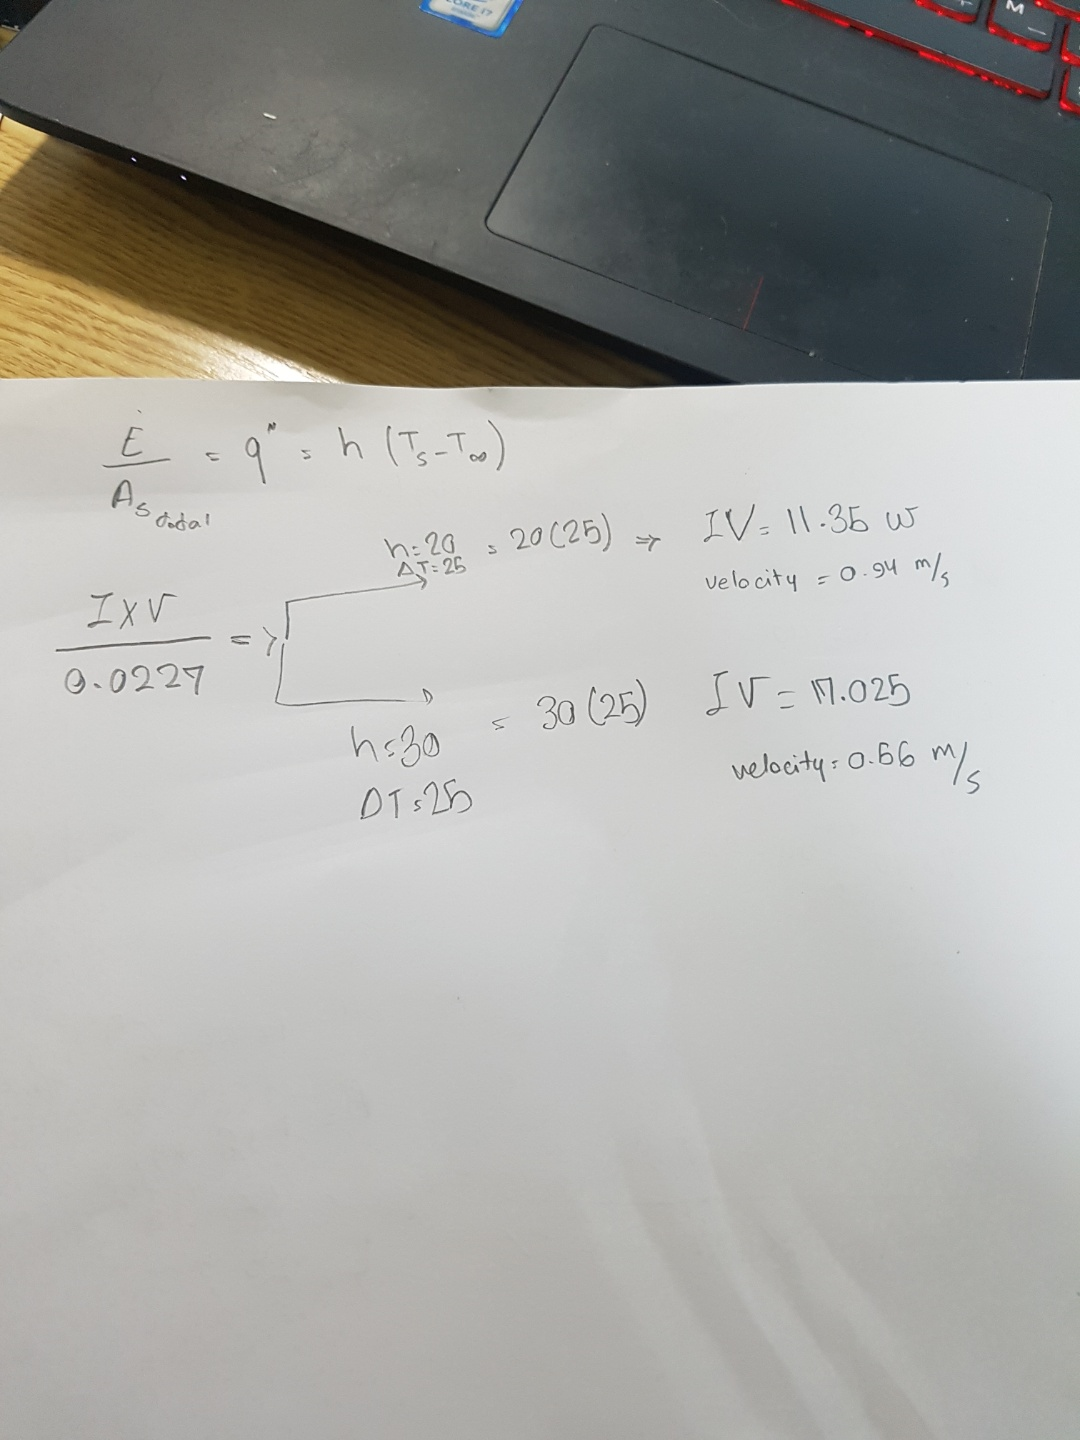 CORE i7
M
Ė / As total = q" = h (Ts - T∞)
h=20 ΔT=25 = 20(25) ⇒ IV = 11.35 W
velocity = 0.94 m/s
I×V / 0.0227 =>
h=30 ΔT=25 = 30(25) IV = 17.025
velocity = 0.66 m/s